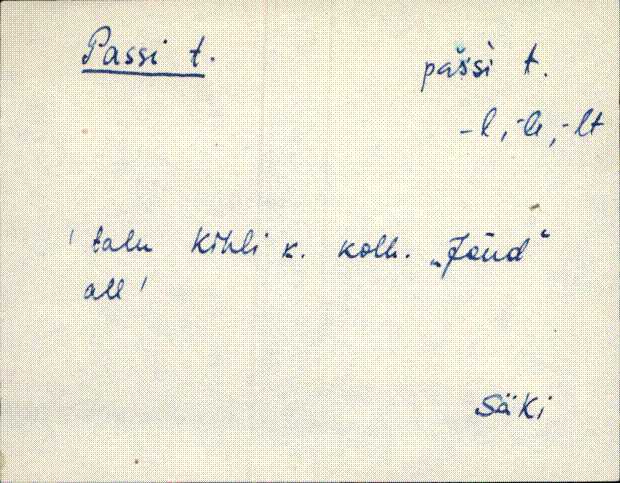 Passi t.
pašśi t.
-l, -le, -lt
' talu Kihli k. kolh. „Jõud"
all '
Säki